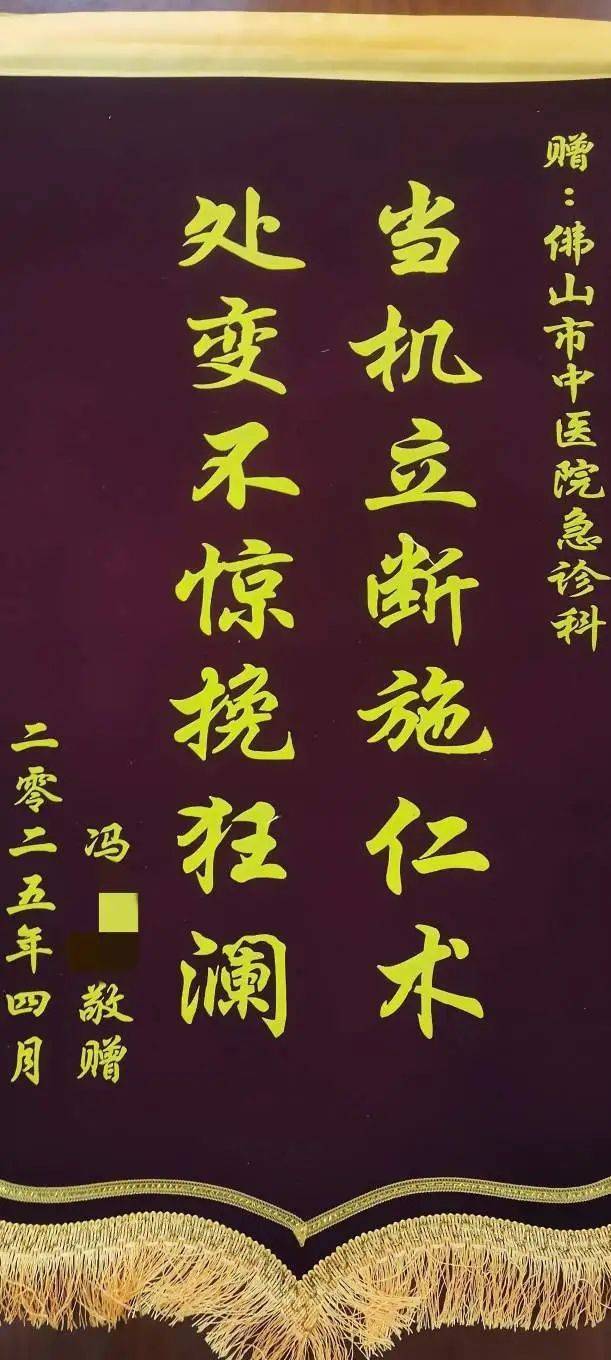 赠：佛山市中医院急诊科
当机立断施仁术
处变不惊挽狂澜
冯 敬赠
二零二五年四月